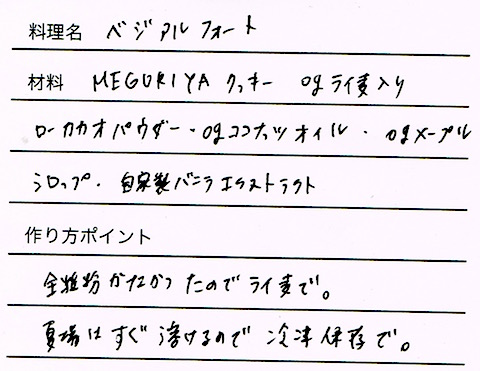 料理名 ベジアルフォート
材料 MEGURIYA クッキー ogライ麦入り
ローカカオパウダー・ogココナッツオイル・ogメープル
シロップ・自家製バニラエクストラクト
作り方ポイント
全粒粉がなかったのでライ麦で。
夏場はすぐ溶けるので冷凍保存で。